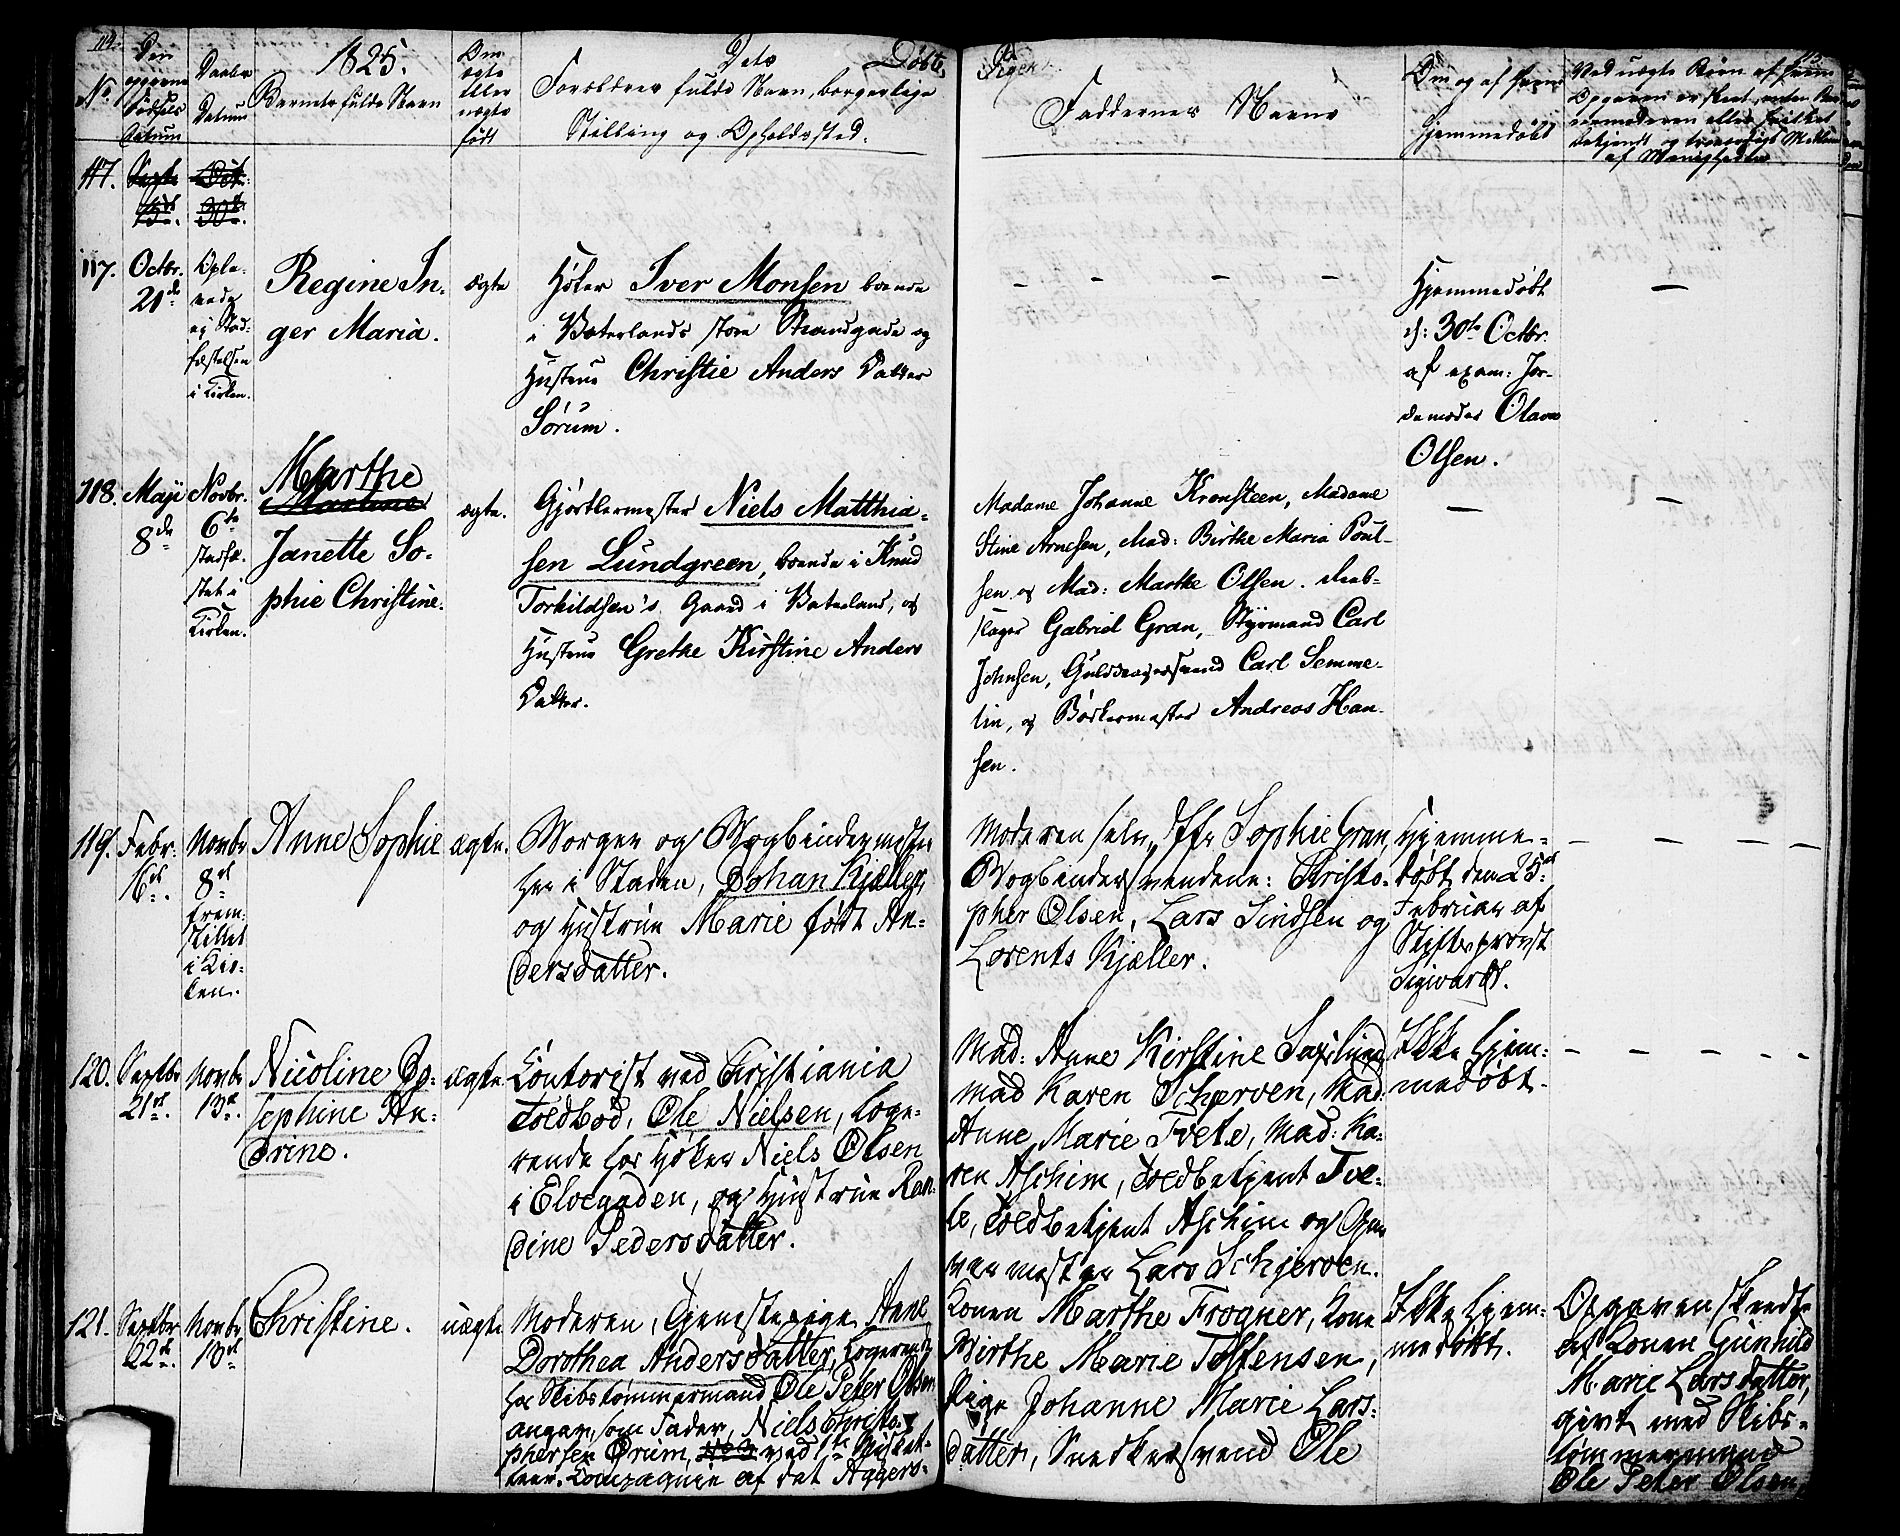 114.
Døbte
Piger.
115.
No
Den opgivne Fødsels Datum
Daabs Datum
1825.
Barnets fulde Navn
Om ægte eller uægte født
Dets
Forældres fulde Navn, borgerlige
Stilling og Opholdssted.
Faddernes Navne
Om og af hvem
hjemmedøbt
Ved uægte Børn af hvem
Opgaven er skeet, enten
af Menigheden
117.
Septbr
Oct.
30te
117.
Octbr.
21de
Ople-
vede
ej Stad-
fæstelsen
i Kirken.
Regine In-
ger Maria.
ægte
Høker Iver Monsen boende
i Vaterlands store Strandgade og
Hustrue Christie Anders Datter
Sørum.
Hjemmedøbt
d: 30te Octbr.
af exam: Jor-
demoder Olava
Olsen.
118.
Maji
8de
Novbr.
6te
stadfæ-
stet i
Kirken.
Marthe
Janette So-
phie Christine.
ægte.
Gjørtlermester Niels Matthia-
sen Lundgreen, boende i Knud
Torkildsen's Gaard i Vaterland, og
Hustrue Grethe Kirstine Anders
Datter.
Madame Johanne Kronsteen, Madame
Stine Arnesen, Mad: Birthe Maria Poul-
sen og Mad: Marthe Olsen. Reb-
slager Gabriel Gran, Styrmand Carl
Johnsen, Guldsmedsvend Carl Semme-
lin, og Bødkermester Andreas Han-
sen.
119.
Febr.
6te.
Novbr
8de
frem-
stillet
i Kir-
ken.
Anne Sophie
ægte.
Borger og Bogbindermester
her i Staden, Johan Kjæller,
og Hustrue Marie født An-
dersdatter.
Moderen selv, Jfr Sophie Gran,
Bogbindersvendene: Christo-
pher Olsen, Lars Lindsen og
Lorents Kjæller.
Hjemme-
døbt den 25de
Februar af
Stiftsprovst
Sigwardt.
120.
Septbr
21de.
Novbr
13de.
Nicoline Jo-
sephine An-
drine.
ægte
Contorist ved Christiania
Toldbod, Ole Nielsen, loge-
rende hos Høker Niels Olsen
i Elvegaden, og Hustrue Ran-
dine Pedersdatter.
Mad: Anne Kirstine Saxlund
Mad Karen Schjerven, Mad:
Anne Marie Tvete, Mad: Ka-
ren Aschim, Toldbetjent Tve-
te, Toldbetjent Aschim og
vermester Lars Schjerven.
Ikke hjem-
medøbt.
121.
Septbr
22de.
Novbr
13de
Christine.
uægte
Moderen, Tjenestepige Anne
Dorothea Andersdatter, logerende
hos Skibstømmermand Ole Peter Olsen
angav, som Fader, Niels Christo-
phersen Ørum, ved 1te Musket-
teer-Compagnie af det Aggers-
Konen Marthe Frogner, Kone
Birthe Marie Tostensen,
Pige Johanne Marie Lars-
datter, Snedkersvend Ole
Ikke hjem-
medøbt.
Opgaven skeedt
af Konen Gunhild
Marie Larsdatter,
givt med Skibs-
tømmermand
Ole Peter Olsen,